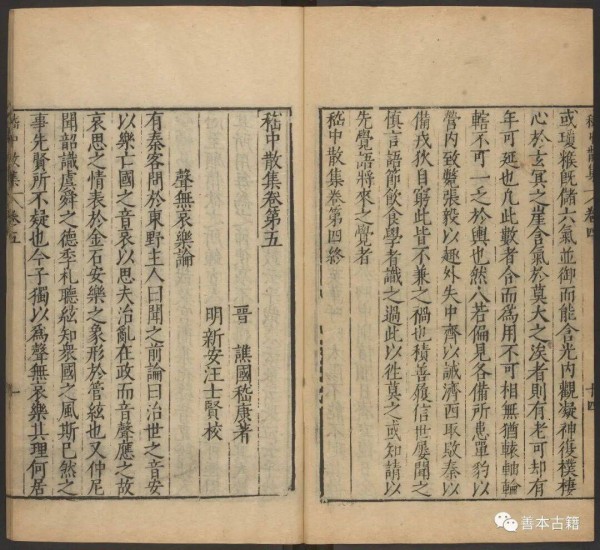 嵇中散集 卷四
十四
或瓊糇既儲六氣並御而能含光內觀凝神復樸棲
心於玄冥之崖含氣於莫大之涘者則有老可却有
年可延也凡此數者合而為用不可相無猶轅軸輪
轄不可一乏於輿也然人若偏見各備所患單豹以
營內致斃張毅以趣外失中齊以誡濟西取敗秦以
備戎狄自窮此皆不兼之禍也積善履信世屢聞之
慎言語節飲食學者識之過此以徃莫之或知請以
先覺語將來之覺者
嵇中散集卷第四終
嵇中散集卷第五
晉 譙國嵇康著
明新安汪士賢校
聲無哀樂論
有秦客問於東野主人曰聞之前論曰治世之音安
以樂亡國之音哀以思夫治亂在政而音聲應之故
哀思之情表於金石安樂之象形於管絃也又仲尼
聞韶識虞舜之德季札聽絃知衆國之風斯已然之
事先賢所不疑也今子獨以為聲無哀樂其理何居
嵇中散集 卷五
一
善本古籍